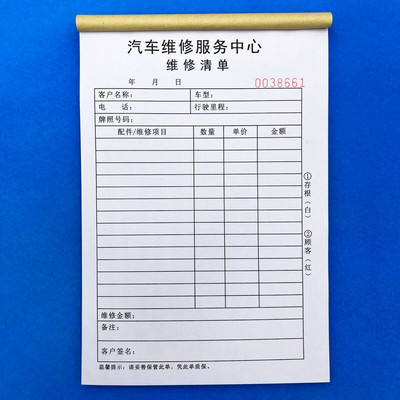 汽车维修服务中心
维修清单
年 月 日 0038661
客户名称： 车型：
电 话： 行驶里程：
牌照号码：
配件/维修项目 数量 单价 金额
①存根（白） ②顾客（红）
维修金额：
备注：
客户签名：
温馨提示：请妥善保管此单，凭此单质保。